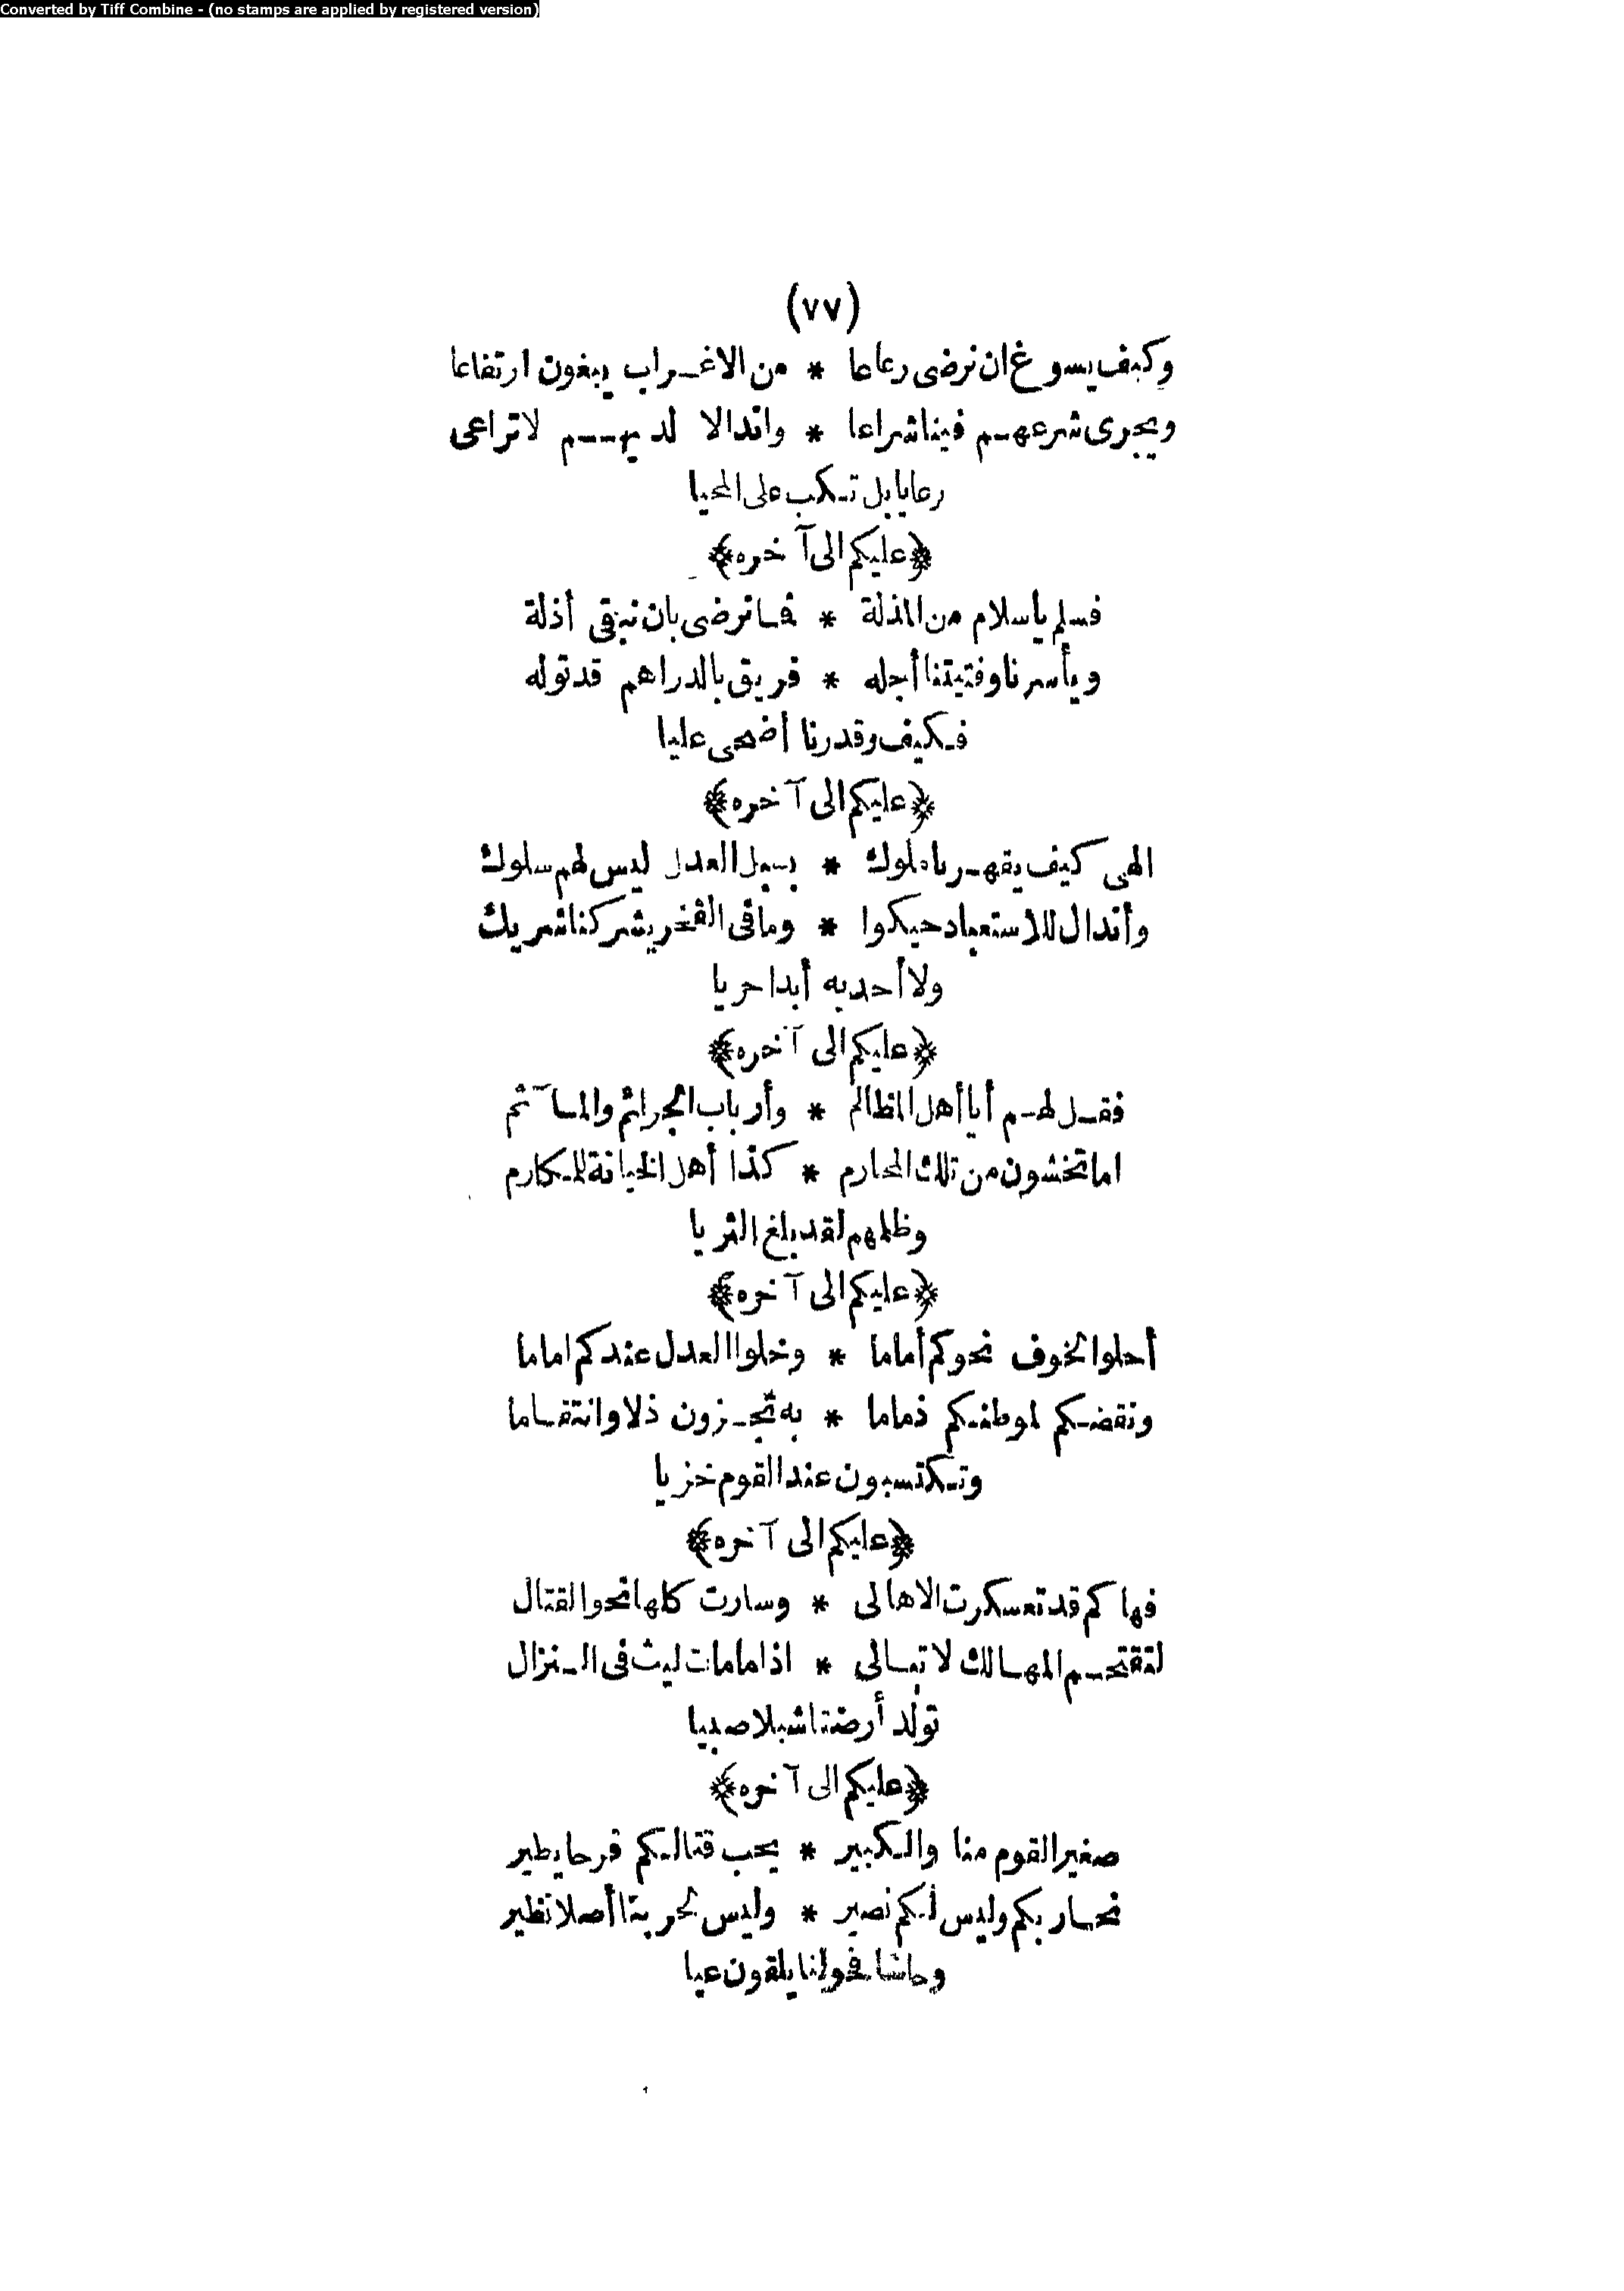 Converted by Tiff Combine - (no stamps are applied by registered version)
(٧٧)
وكيف يسوغ ان نرضى رعاعا * من الاغراب يبغون ارتفاعا
ويجرى شرعهم فينا شراعا * وانذالا لديهم لا تراعى
رعايا بل تكب على المحيا
﴿عليكم الى آخره﴾
فسلم يا سلام من المذلة * فما نرضى بان نبقى أذلة
ويأسرنا وفتيتنا أجله * فريق بالدراهم قد توله
فكيف وقدرنا أضحى عليا
﴿عليكم الى آخره﴾
الهى كيف يقهرنا ملوك * بسبل العدل ليس لهم سلوك
وأنذال للاستعباد حيكوا * وما فى الفخر يشركنا شريك
ولا أحد به أبدا حريا
﴿عليكم الى آخره﴾
فقل لهم أيا أهل المظالم * وأرباب الجرائم والمآثم
اما تخشون من تلك المحارم * كذا أهل الخيانة للمكارم
وظلمهم لقد بلغ الثريا
﴿عليكم الى آخره﴾
أحلوا الخوف نحوكم أماما * وخلوا العدل عندكم اماما
ونقضكم لموطنكم ذماما * به تجزون ذلا وانتقاما
وتكتسبون عند القوم خزيا
﴿عليكم الى آخره﴾
فها كم قد تعسكرت الاهالى * وسارت كلها نحو القتال
لتقتحم المهالك لا تبالى * اذا ما مات ليث فى النزال
تولد أرضنا شبلا صبيا
﴿عليكم الى آخره﴾
صغير القوم منا والكبير * يحب قتالكم فرحا يطير
نحاربكم وليس لكم نصير * وليس لحربنا أصلا نظير
وحاشا فحولنا يلقون عيا